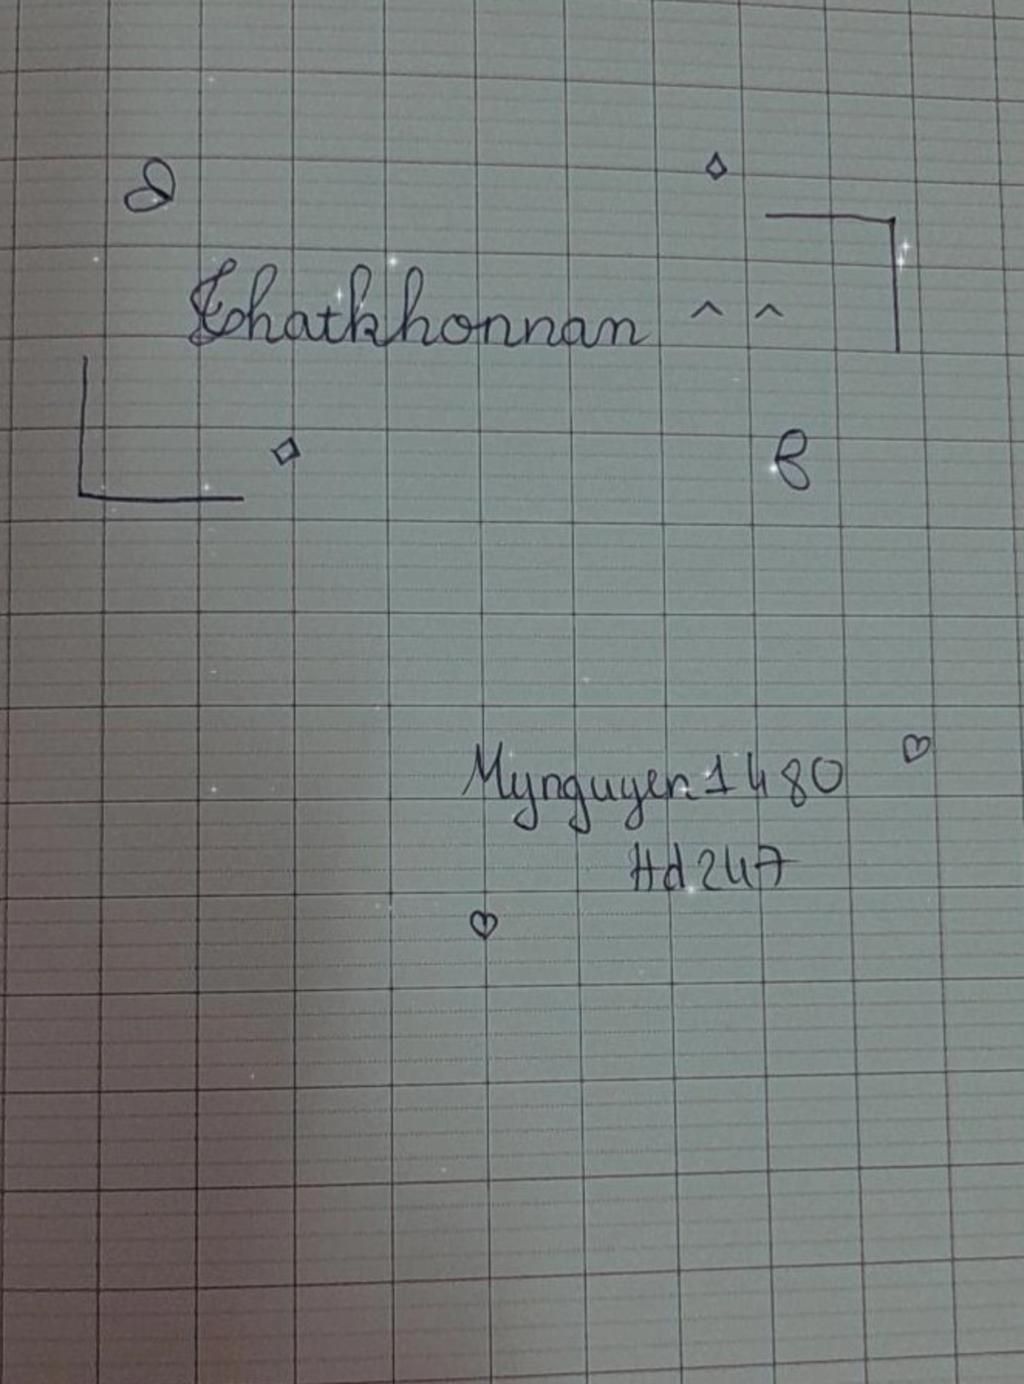 Thatkhonnan ^ ^
Mynguyen1480
Hd247